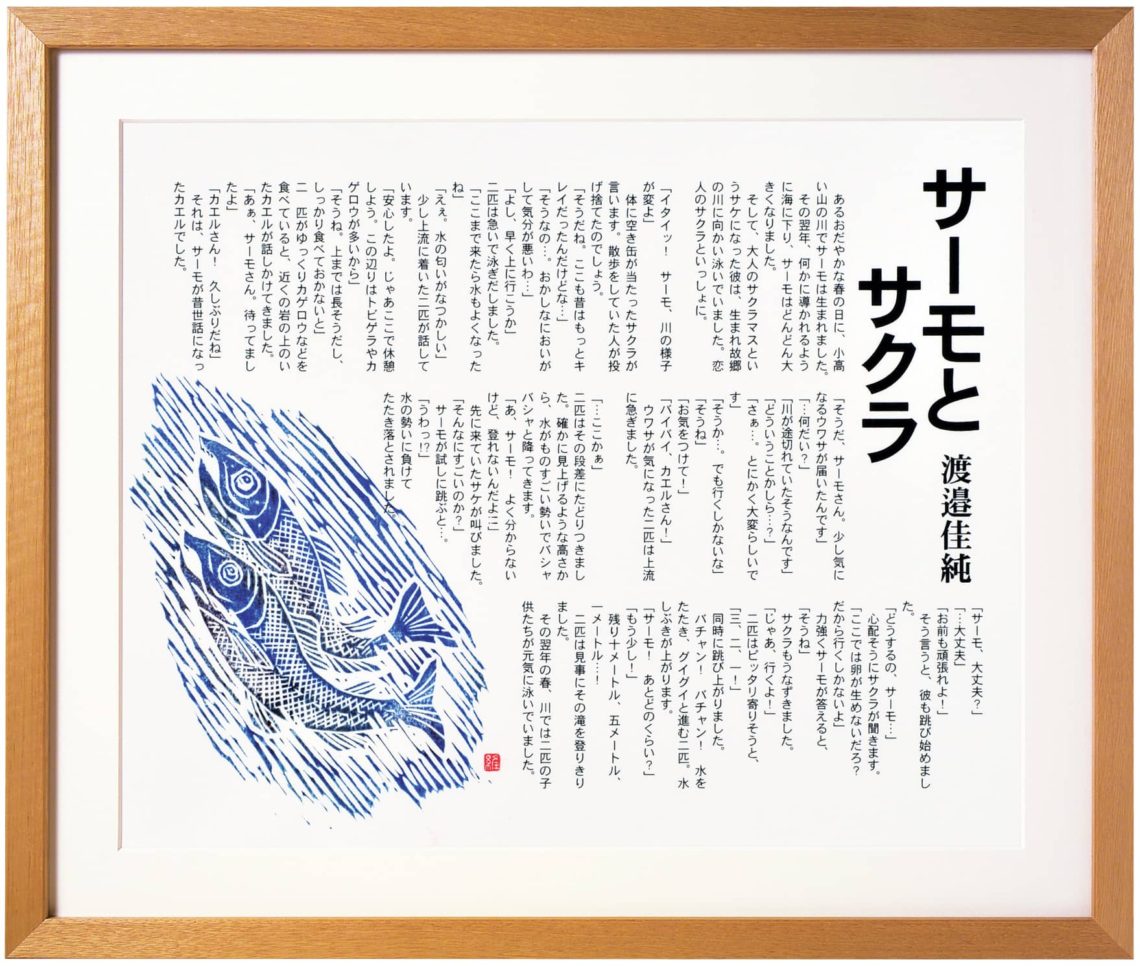 サーモと
サクラ
渡邉佳純
あるおだやかな春の日に、小高
い山の川でサーモは生まれました。
その翌年、何かに導かれるよう
に海に下り、サーモはどんどん大
きくなりました。
そして、大人のサクラマスとい
うサケになった彼は、生まれ故郷
の川に向かい泳いでいました。恋
人のサクラといっしょに。
「イタイッ！　サーモ、川の様子
が変よ」
体に空き缶が当たったサクラが
言います。散歩をしていた人が投
げ捨てたのでしょう。
「そうだね。ここも昔はもっとキ
レイだったんだけどな…」
「そうなの…。おかしなにおいが
して気分が悪いわ…」
「よし、早く上に行こうか」
二匹は急いで泳ぎだしました。
「ここまで来たら水もよくなった
ね」
「えぇ。水の匂いがなつかしい」
少し上流に着いた二匹が話して
います。
「安心したよ。じゃあここで休憩
しよう。この辺りはトビゲラやカ
ゲロウが多いから」
「そうね。上までは長そうだし、
しっかり食べておかないと」
二　匹がゆっくりカゲロウなどを
食べていると、近くの岩の上のい
たカエルが話しかけてきました。
「あぁ、サーモさん。待ってまし
たよ」
「カエルさん！　久しぶりだね」
それは、サーモが昔世話になっ
たカエルでした。
「そうだ、サーモさん。少し気に
なるウワサが届いたんです」
「…何だい？」
「川が途切れていたそうなんです」
「どういうことかしら…？」
「さぁ…。とにかく大変らしいで
す」
「そうか…。でも行くしかないな」
「そうね」
「お気をつけて！」
「バイバイ、カエルさん！」
ウワサが気になった二匹は上流
に急ぎました。
「…ここかぁ」
二匹はその段差にたどりつきまし
た。確かに見上げるような高さか
ら、水がものすごい勢いでバシャ
バシャと降ってきます。
「あ、サーモ！　よく分からない
けど、登れないんだよ！」
先に来ていたサケが叫びました。
「そんなにすごいのか？」
サーモが試しに跳ぶと…。
「うわっ!?」
水の勢いに負けて
たたき落とされました。
「サーモ、大丈夫？」
「…大丈夫」
「お前も頑張れよ！」
そう言うと、彼も跳び始めまし
た。
「どうするの、サーモ…」
心配そうにサクラが聞きます。
「ここでは卵が生めないだろ？
だから行くしかないよ」
力強くサーモが答えると、
「そうね」
サクラもうなずきました。
「じゃあ、行くよ！」
二匹はピッタリ寄りそうと、
「三、二、一！」
同時に跳び上がりました。
バチャン！　バチャン！　水を
たたき、グイグイと進む二匹。水
しぶきが上がります。
「サーモ！　あとどのくらい？」
「もう少し！」
残り十メートル、五メートル、
一メートル…！
二匹は見事にその滝を登りきり
ました。
その翌年の春、川では二匹の子
供たちが元気に泳いでいました。